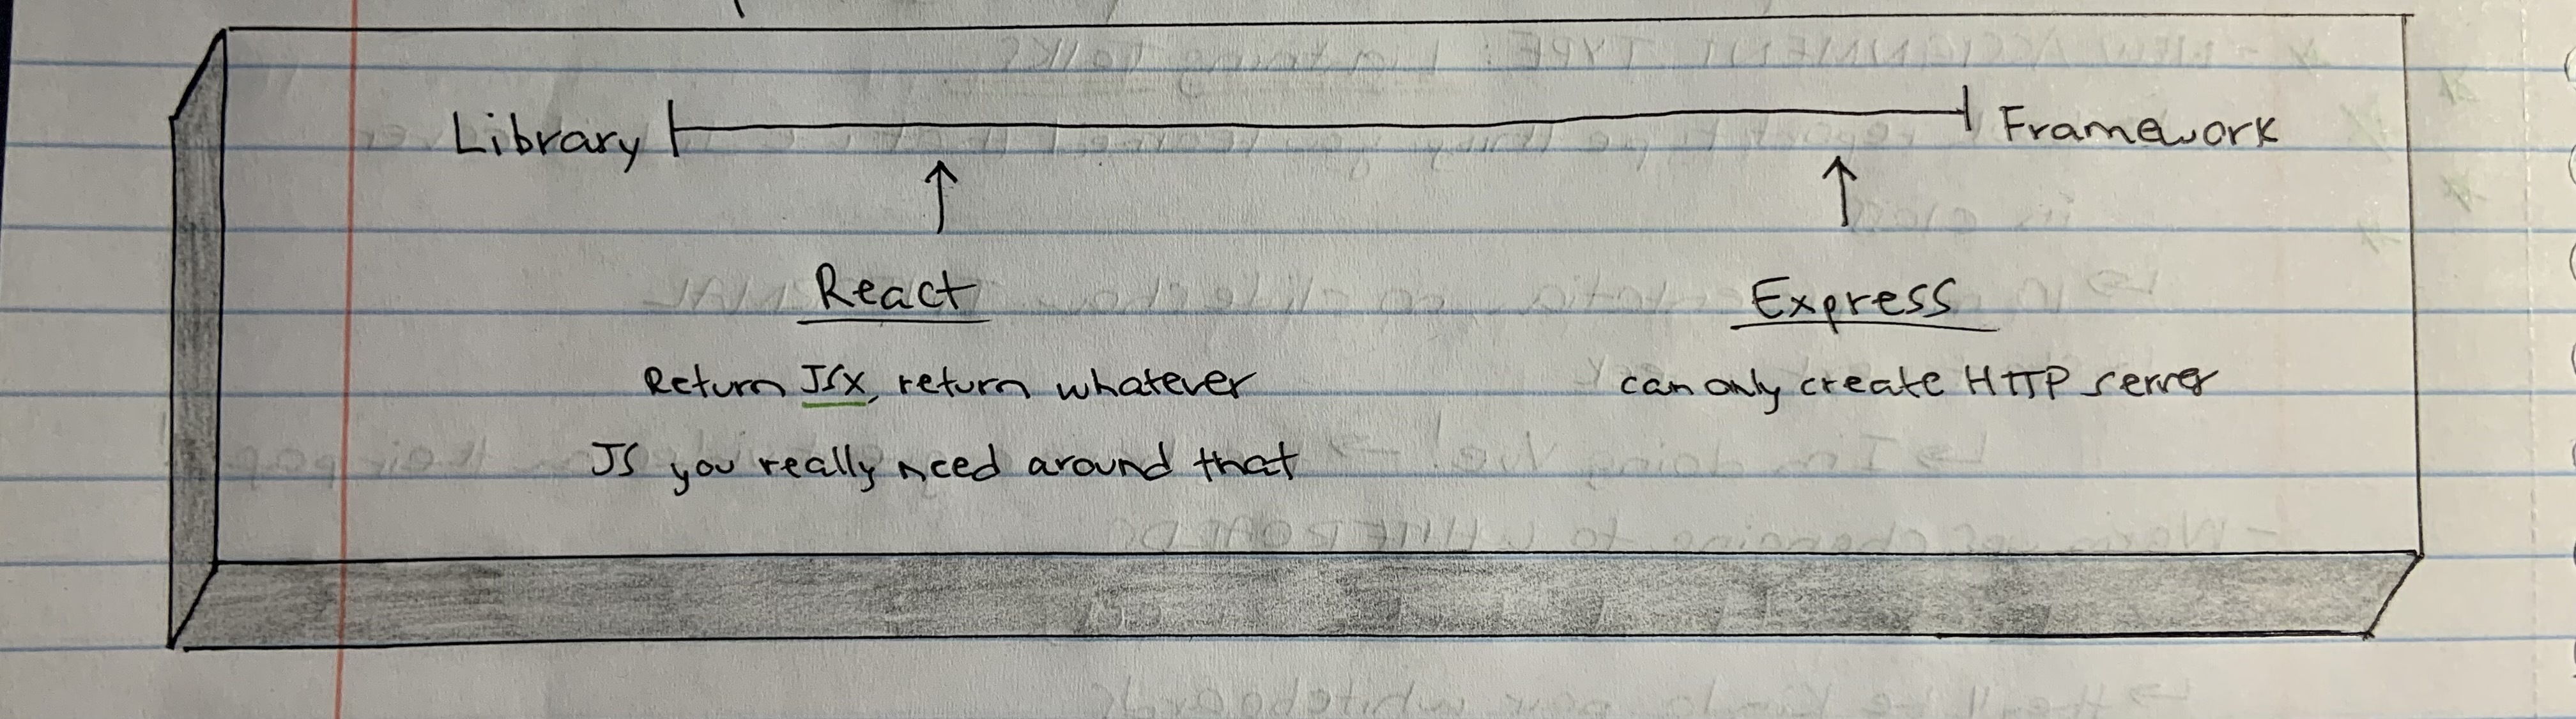 Library Framework
React Express
Return JSX, return whatever can only create HTTP server
JS you really need around that